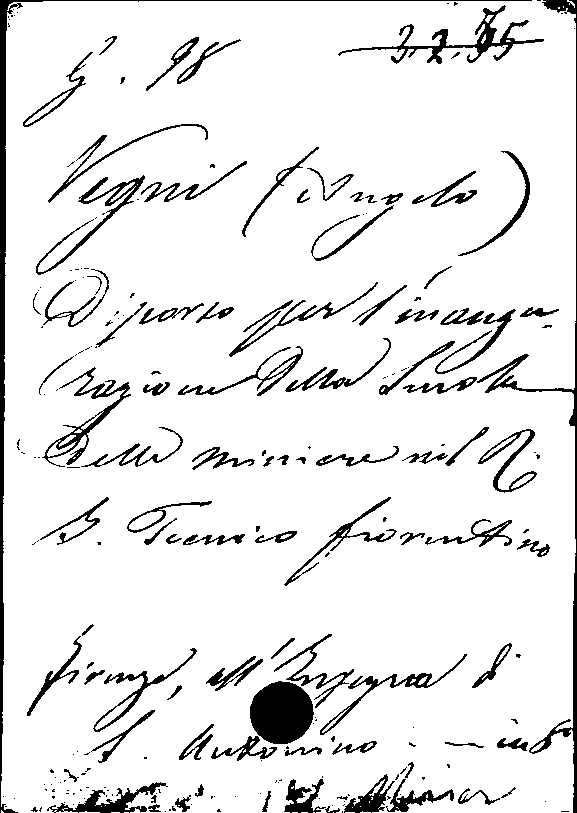 G. 98
3.2.35
Vegni (Angelo)
Discorso per l'inaugu-
razione della Scuola
delle miniere nel R.
I. Tecnico fiorentino
Firenze, all'Insegna di
S. Antonino. — in 8°